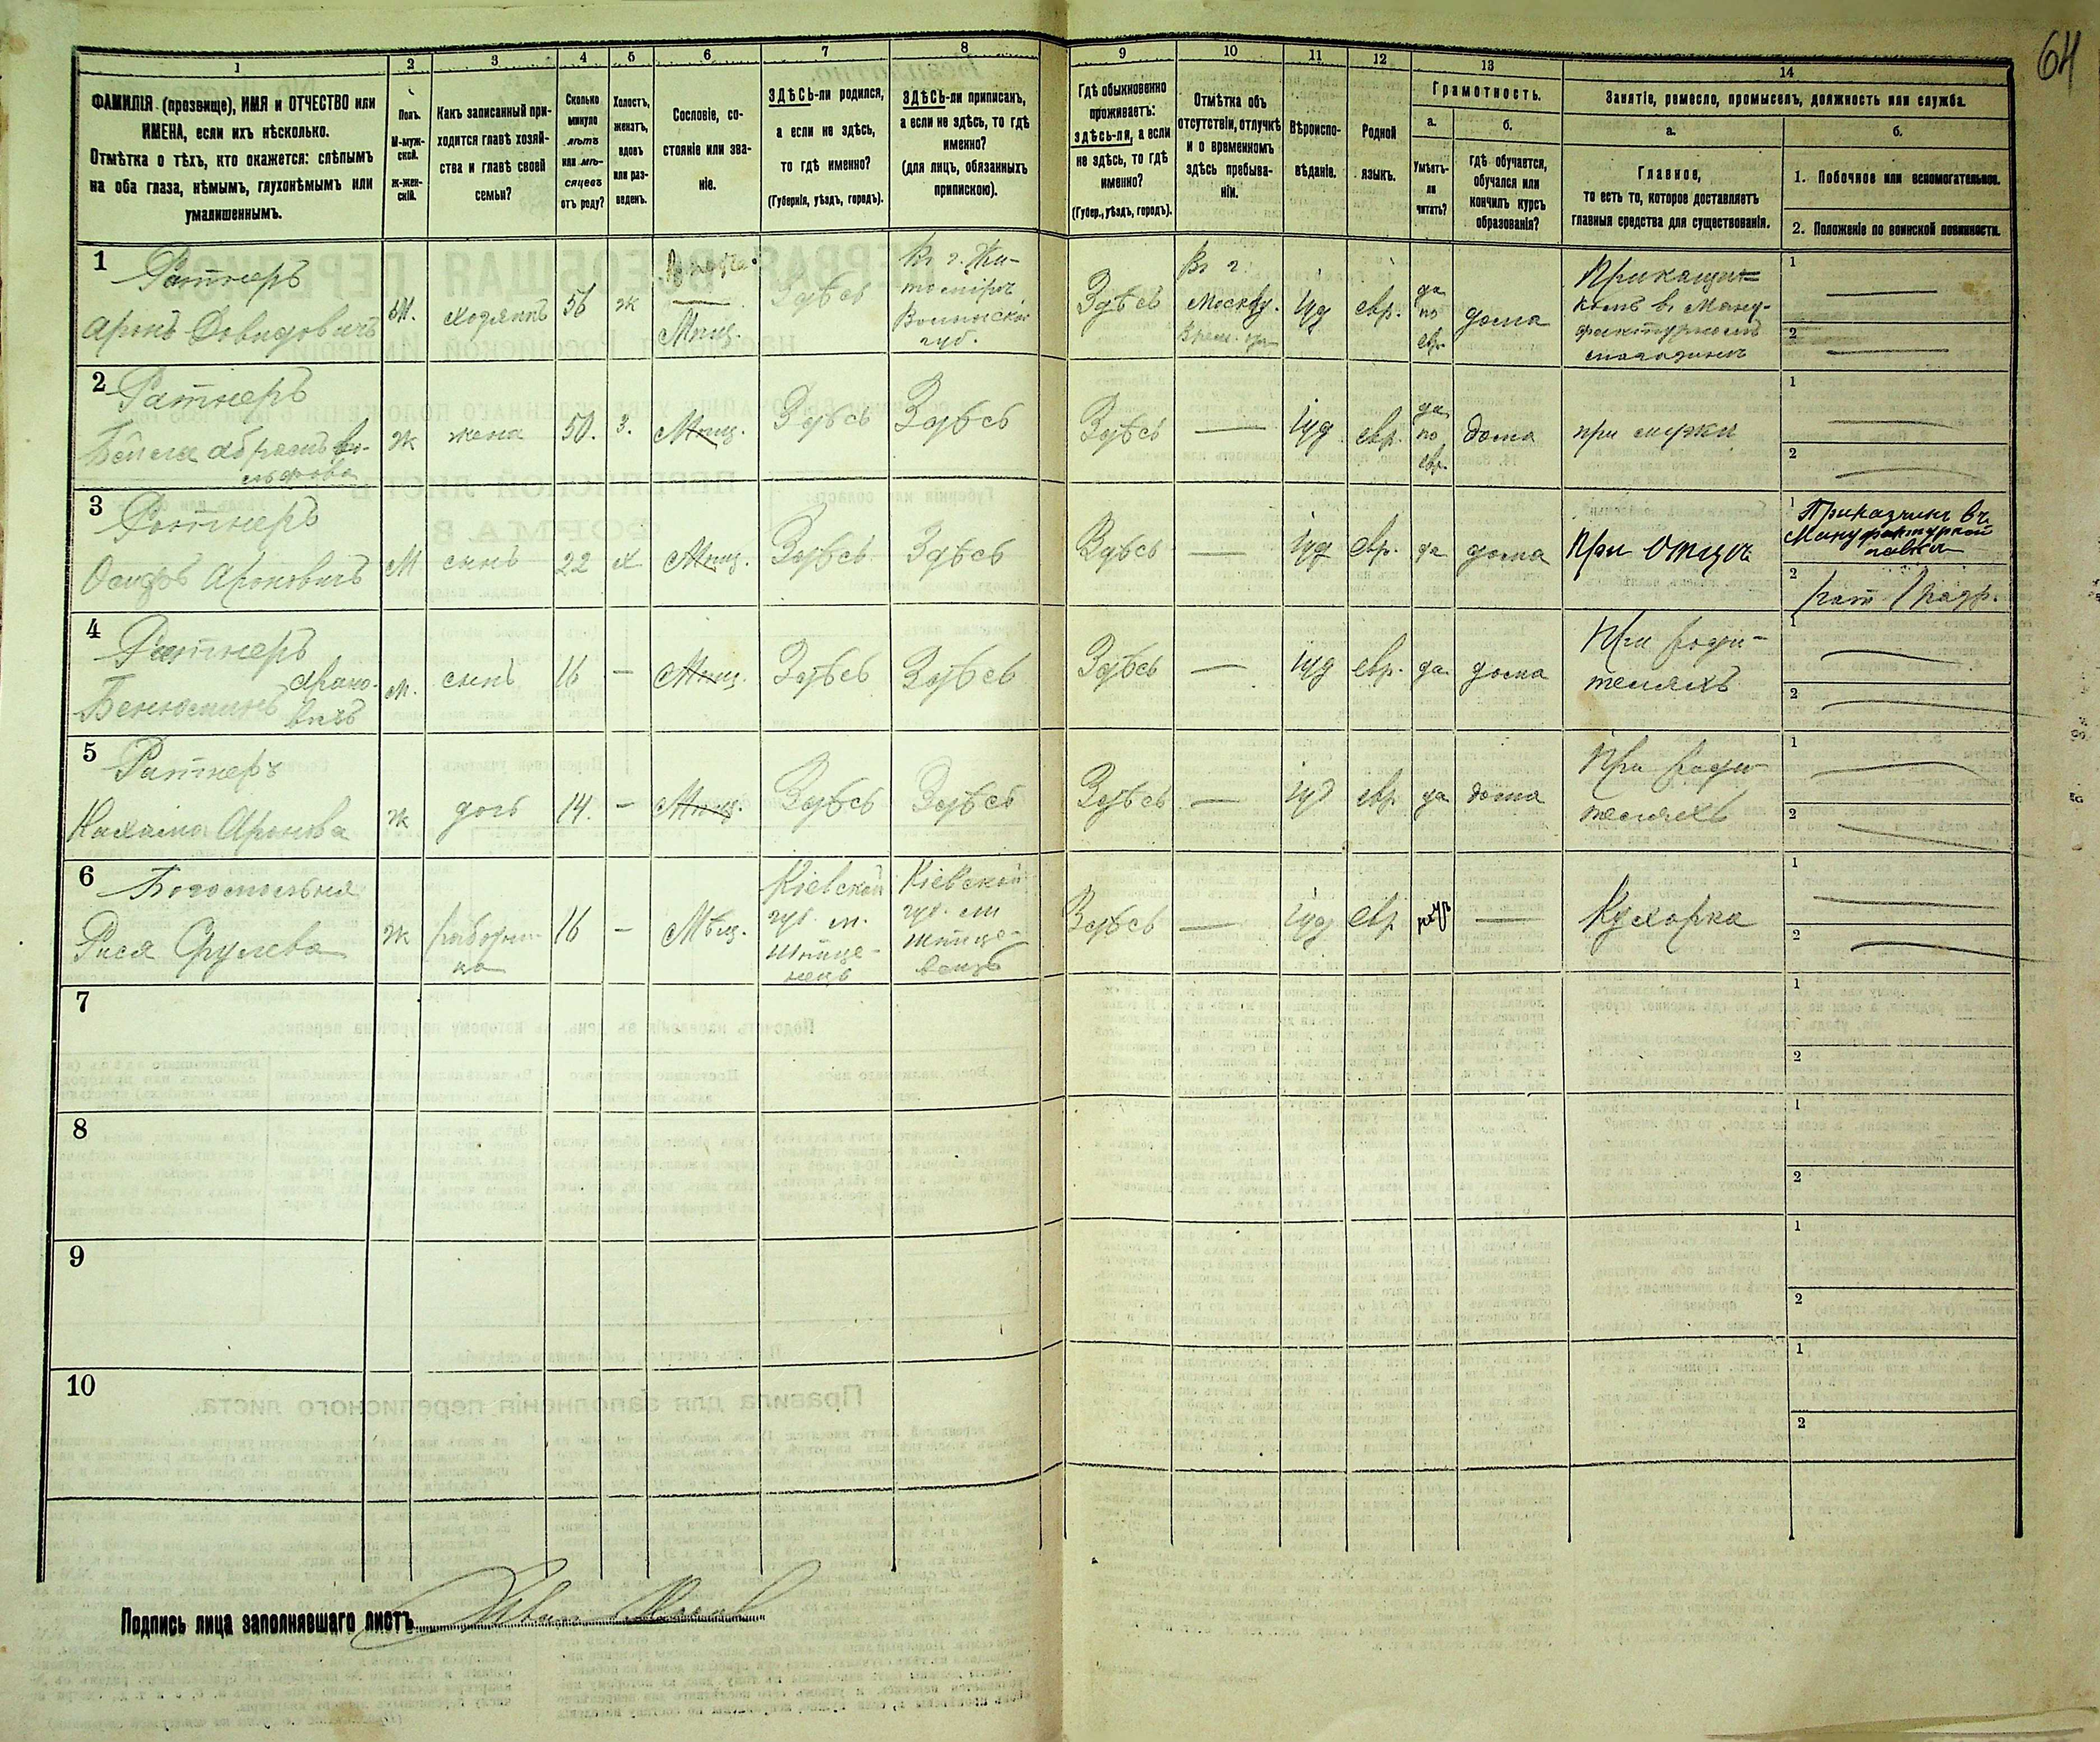 64
1 2 3 4 5 6 7 8 9 10 11 12 13 14
ФАМИЛІЯ (прозвище), ИМЯ и ОТЧЕСТВО или
ИМЕНА, если ихъ нѣсколько.
Отмѣтка о тѣхъ, кто окажется: слѣпымъ
на оба глаза, нѣмымъ, глухонѣмымъ или
умалишеннымъ.
Полъ.
М-муж-
ской.
Ж-жен-
скій.
Какъ записанный при-
ходится главѣ хозяй-
ства и главѣ своей
семьи?
Сколько
минуло
лѣтъ
или мѣ-
сяцевъ
отъ роду?
Холостъ,
женатъ,
вдовъ
или раз-
веденъ.
Сословіе, со-
стояніе или зва-
ніе.
ЗДѢСЬ-ли родился,
а если не здѣсь,
то гдѣ именно?
(Губернія, уѣздъ, городъ).
ЗДѢСЬ-ли приписанъ,
а если не здѣсь, то гдѣ
именно?
(для лицъ, обязанныхъ
припискою).
Гдѣ обыкновенно
проживаетъ:
ЗДѢСЬ-ли, а если
не здѣсь, то гдѣ
именно?
(Губер., уѣздъ, городъ).
Отмѣтка объ
отсутствіи, отлучкѣ
и о временномъ
здѣсь пребыва-
ніи.
Вѣроиспо-
вѣданіе.
Родной
языкъ.
Грамотность.
а.
Умѣетъ-
ли
читать?
б.
гдѣ обучается,
обучался или
кончилъ курсъ
образованія?
Занятіе, ремесло, промыселъ, должность или служба.
а.
Главное,
то есть то, которое доставляетъ
главныя средства для существованія.
б.
1. Побочное или вспомогательное.
2. Положеніе по воинской повинности.
1
Ратнеръ
Аронъ Довидовичъ
М.
хозяинъ
56
ж
Мѣщ.
Здѣсь
Въ г. Жи-
томірѣ
Волынской
губ.
Здѣсь
Въ г.
Москву.
іуд
евр.
да
по
евр.
дома
Прикащи-
комъ въ Ману-
фактурномъ
1
2
2
Ратнеръ
Бейла
ж
жена
50.
з.
Мѣщ.
Здѣсь
Здѣсь
Здѣсь
іуд
евр.
да
по
евр.
дома
при мужи
1
2
3
Ратнеръ
Осифъ Ароновичъ
М
сынъ
22
х
Мѣщ.
Здѣсь
Здѣсь
Здѣсь
іуд
евр.
да
дома
при отцѣ
1 Приказчикъ въ
Мануфактурной
лавки
2
4
Ратнеръ
Бенюминъ Ароно-
вичъ
м.
сынъ
16
Мѣщ.
Здѣсь
Здѣсь
Здѣсь
іуд
евр.
да
дома
При роди-
теляхъ
1
2
5
Ратнеръ
Аронова
ж
дочь
14.
Мѣщ.
Здѣсь
Здѣсь
Здѣсь
іуд
евр.
да
дома
При роди-
теляхъ
1
2
6
Богомольная
Рися Срулева
ж
16
Мѣщ.
Кіевской
губ. м.
Кіевской
губ. м
Здѣсь
іуд
евр
Кухарка
1
2
7
1
2
8
1
2
9
1
2
10
1
2
Подпись лица заполнявшаго листъ